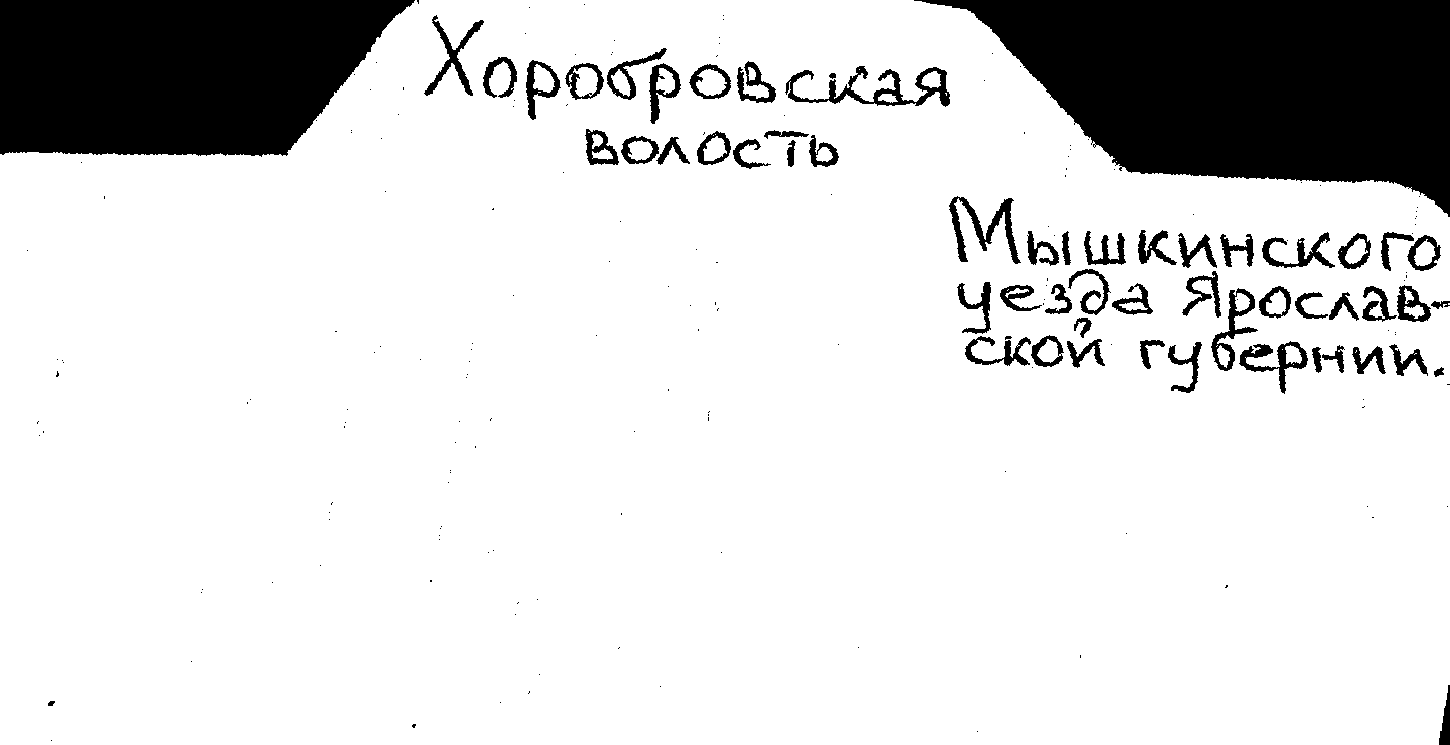 Хоробровская
волость
Мышкинского
уезда Ярослав-
ской губернии.